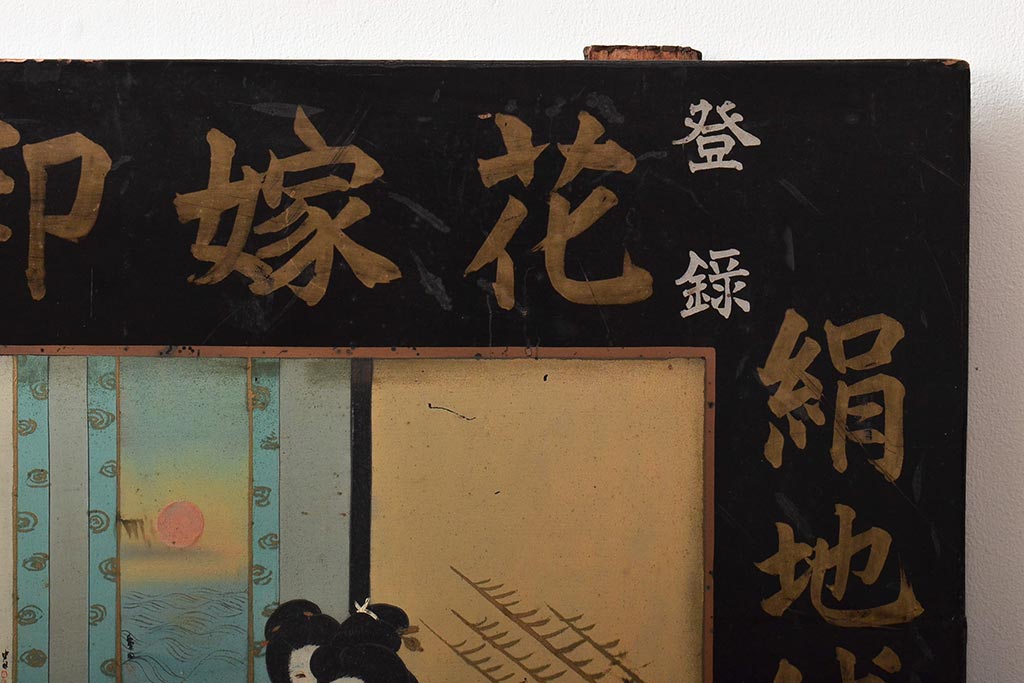 登録
花嫁印
絹地